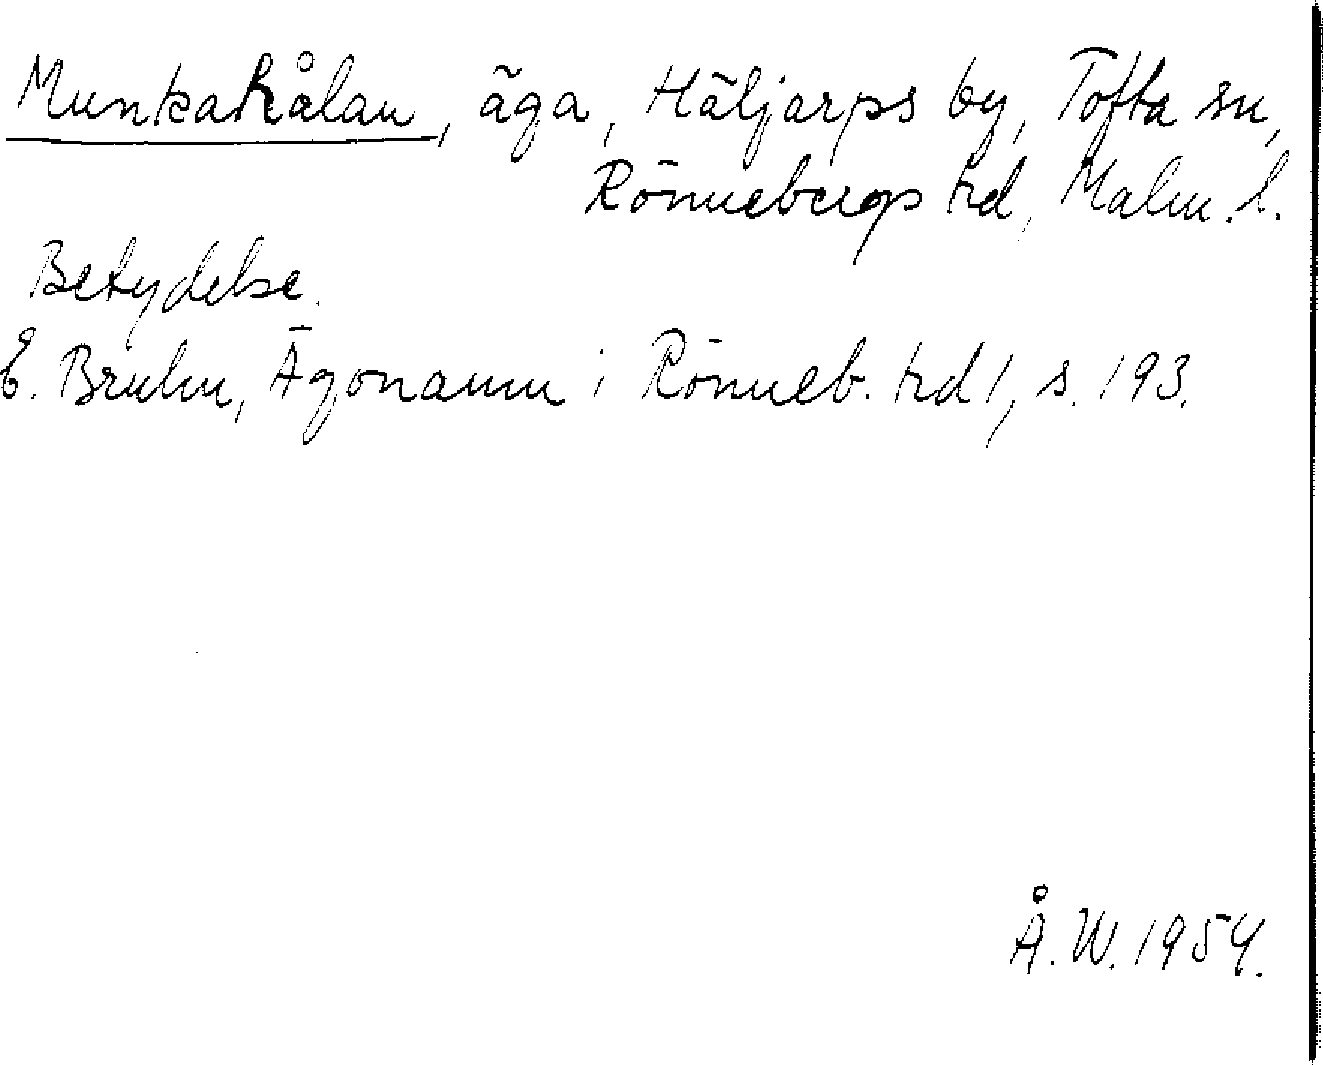 Munkahålan, äga, Häljarps by, Tofta sn,
Rönnebergs hd, Malm. l.
Betydelse.
E. Bruhn, Ägonamn i Rönneb. hd 1, s. 193.
Å. W. 1954.